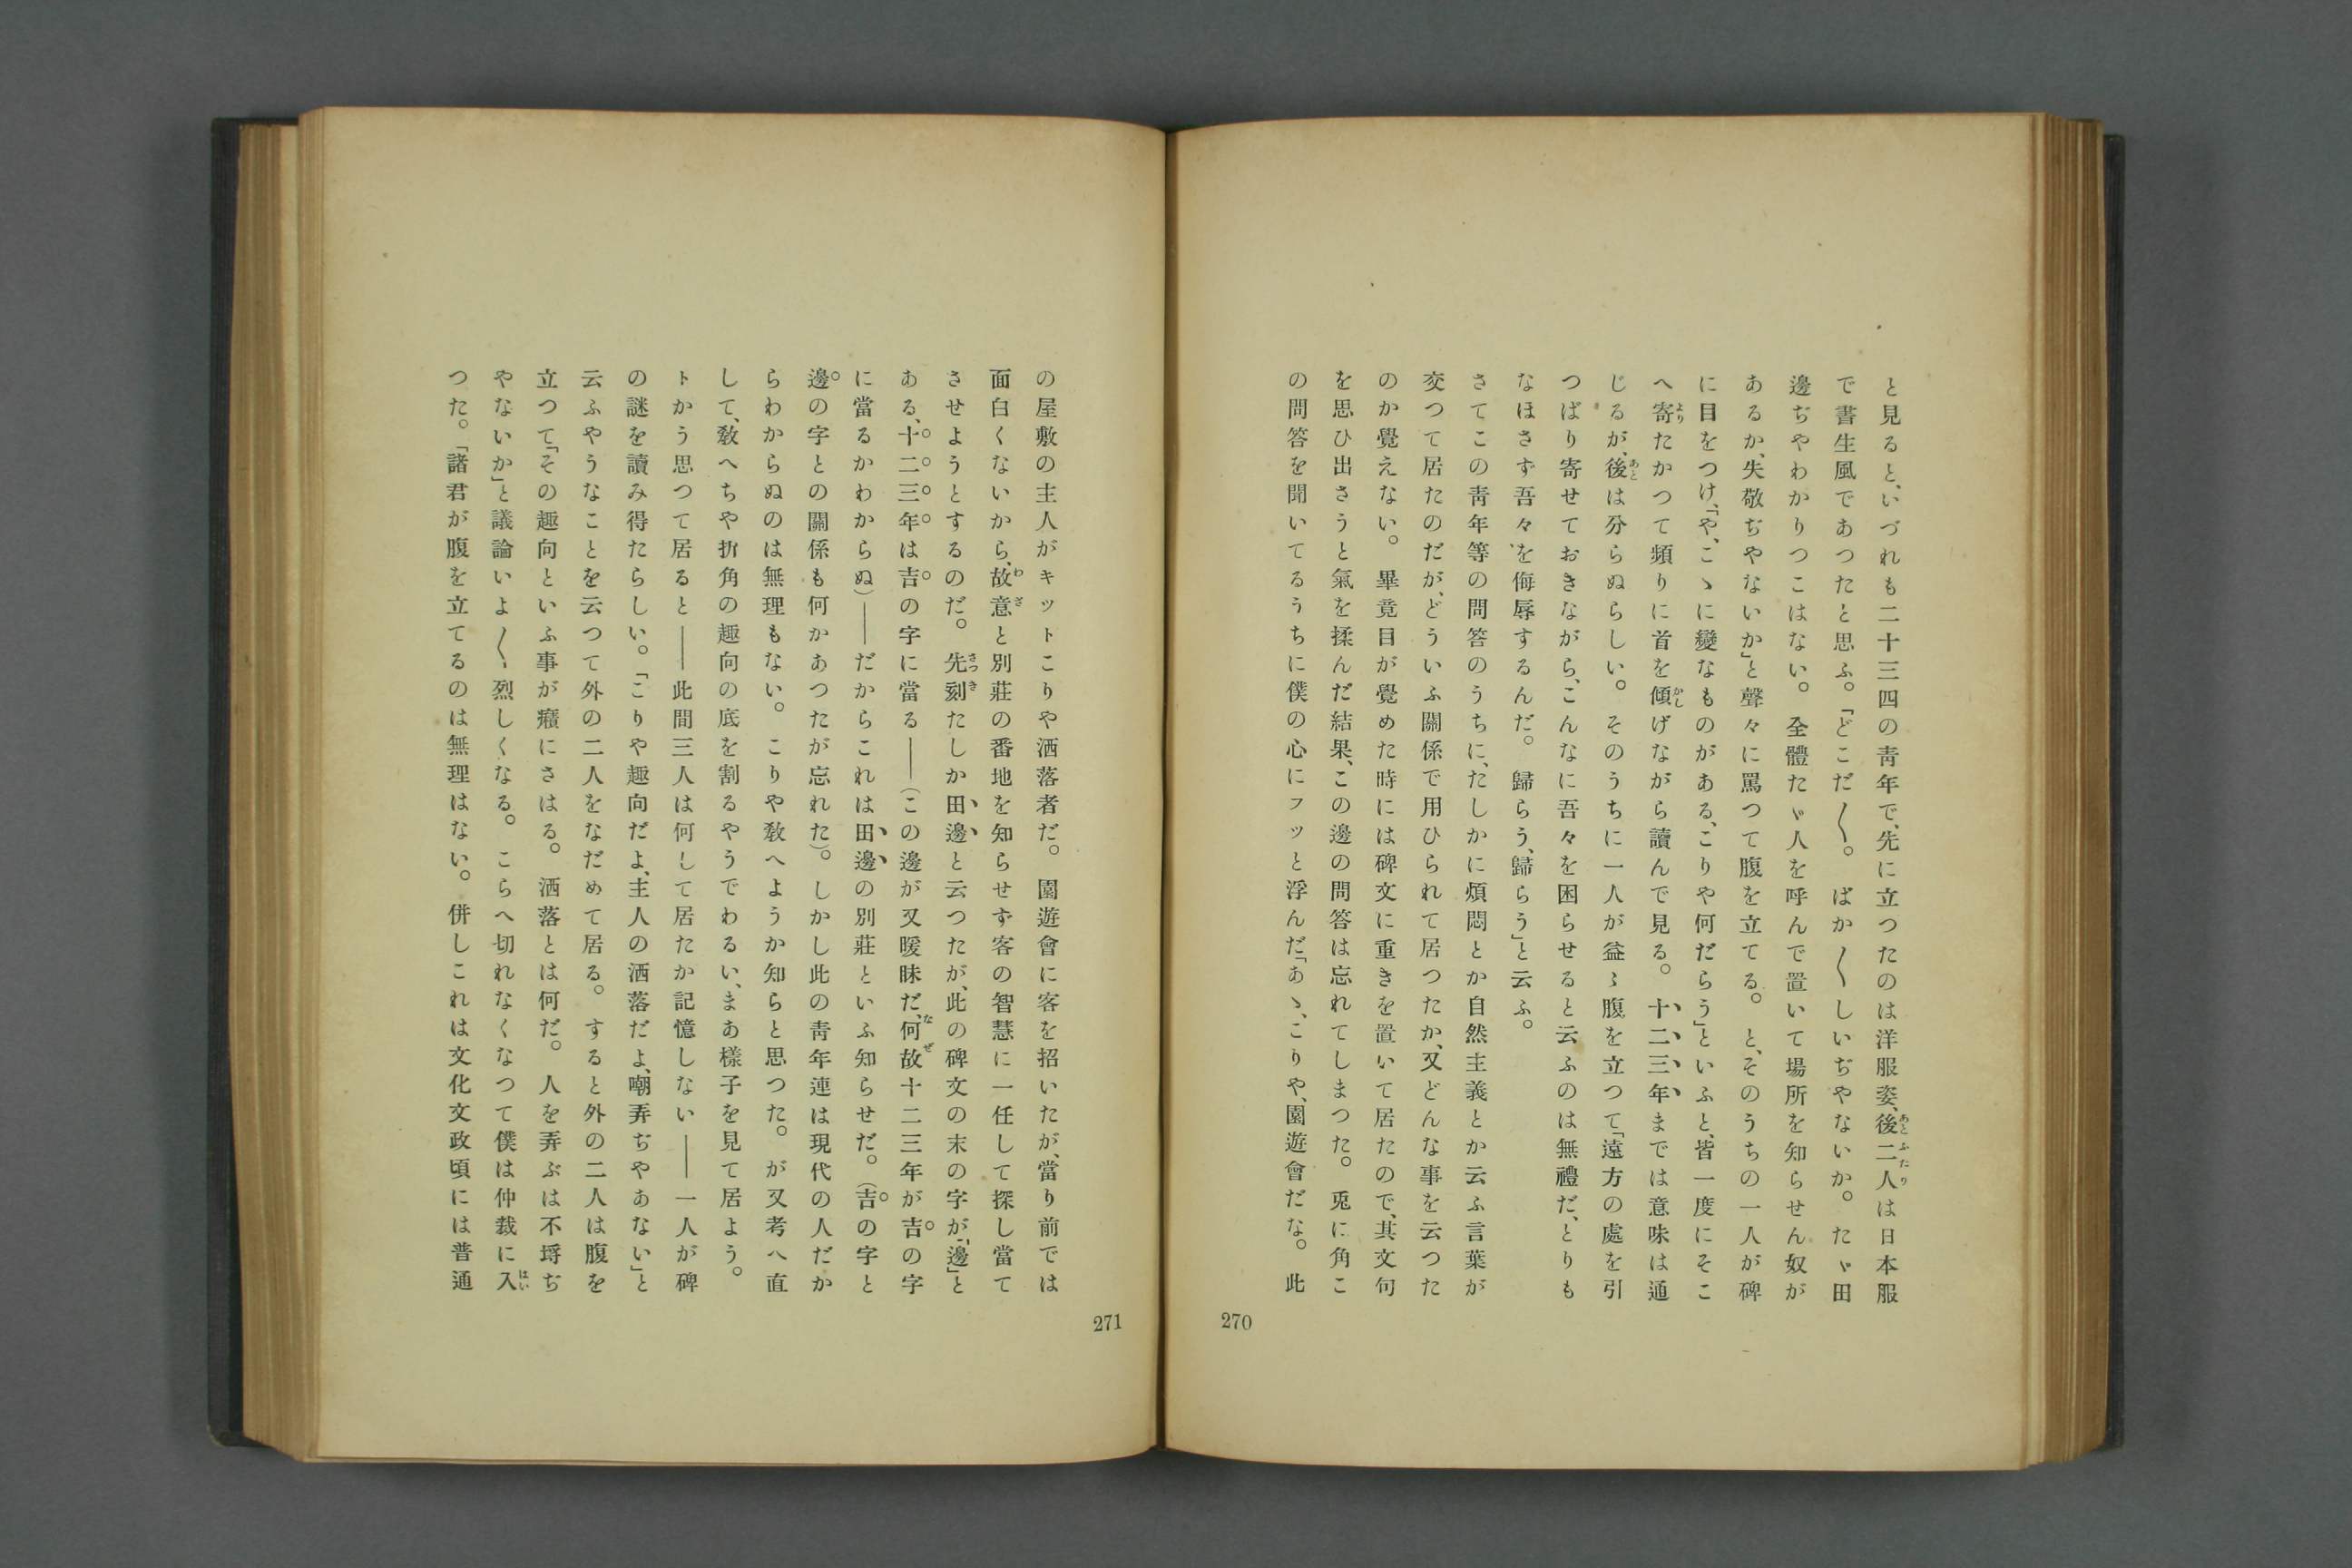 と見ると、いづれも二十三四の靑年で、先に立つたのは洋服姿、後二人は日本服
で書生風であつたと思ふ。「どこだ〱。ばか〱しいぢやないか。たゞ田
邊ぢやわかりつこはない。全體たゞ人を呼んで置いて場所を知らせん奴が
あるか、失敬ぢやないか」と聲々に罵つて腹を立てる。と、そのうちの一人が碑
に目をつけ、「や、こゝに變なものがある、こりや何だらう」といふと、皆一度にそこ
へ寄たかつて頻りに首を傾げながら讀んで見る。十二三年までは意味は通
じるが、後は分らぬらしい。そのうちに一人が益〻腹を立つて「遠方の處を引
つぱり寄せておきながら、こんなに吾々を困らせると云ふのは無禮だ、とりも
なほさず吾々を侮辱するんだ。歸らう、歸らう」と云ふ。
さてこの靑年等の問答のうちに、たしかに煩悶とか自然主義とか云ふ言葉が
交つて居たのだが、どういふ關係で用ひられて居つたか、又どんな事を云つた
のか覺えない。畢竟目が覺めた時には碑文に重きを置いて居たので、其文句
を思ひ出さうと氣を揉んだ結果、この邊の問答は忘れてしまつた。兎に角こ
の問答を聞いてるうちに僕の心にフッと浮んだ「あゝ、こりや、園遊會だな。此
270
の屋敷の主人がキットこりや洒落者だ。園遊會に客を招いたが、當り前では
面白くないから、故意と別莊の番地を知らせず客の智慧に一任して探し當て
させようとするのだ。先刻たしか田邊と云つたが、此の碑文の末の字が、「邊」と
ある、十二三年は吉の字に當る――(この邊が又曖昧だ、何故十二三年が吉の字
に當るかわからぬ)――だからこれは田邊の別莊といふ知らせだ。(吉の字と
邊の字との關係も何かあつたが忘れた)。しかし此の靑年連は現代の人だか
らわからぬのは無理もない。こりや敎へようか知らと思つた。が又考へ直
して、敎へちや折角の趣向の底を割るやうでわるい、まあ樣子を見て居よう。
トかう思つて居ると――此間三人は何して居たか記憶しない――一人が碑
の謎を讀み得たらしい。「こりや趣向だよ、主人の洒落だよ、嘲弄ぢやあない」と
云ふやうなことを云つて外の二人をなだめて居る。すると外の二人は腹を
立つて「その趣向といふ事が癪にさはる。洒落とは何だ。人を弄ぶは不埒ぢ
やないか」と議論いよ〱烈しくなる。こらへ切れなくなつて僕は仲裁に入
つた。「諸君が腹を立てるのは無理はない。併しこれは文化文政頃には普通
271